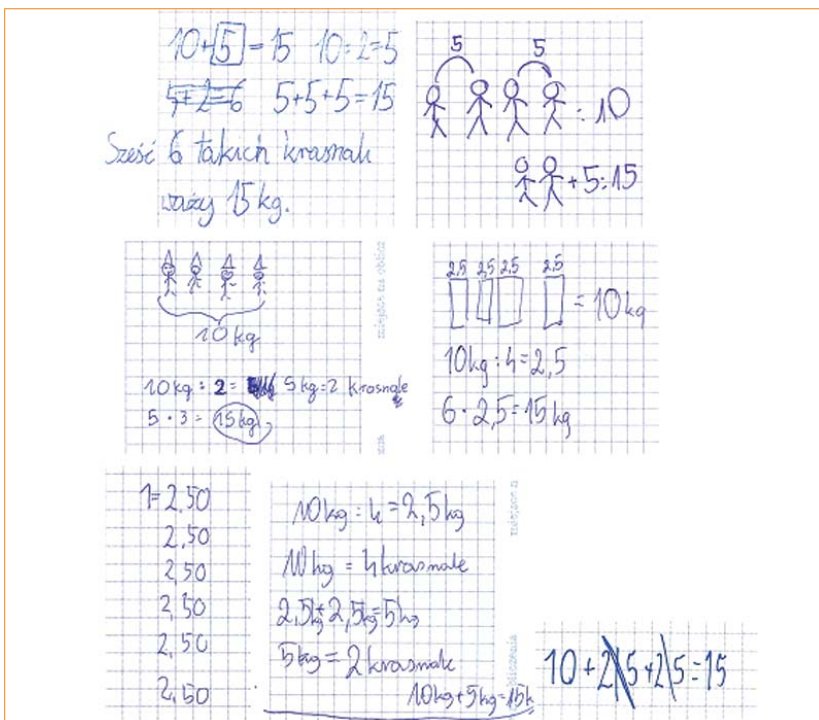 10+5=15 10:2=5
4+2=6 5+5+5=15
Sześć 6 takich krasnali
waży 15 kg.
5 5
=10
+5=15
10 kg
10kg : 2 = 5kg=2 krasnale
5 · 3 = 15kg
2,5 2,5 2,5 2,5
= 10kg
10kg : 4 = 2,5
6 · 2,5 = 15kg
1=2,50
2,50
2,50
2,50
2,50
2,50
10kg : 4 = 2,5kg
10kg = 4 krasnale
2,5kg+2,5kg=5kg
5kg = 2 krasnale
10kg+5kg=15k
10+2\5+2\5=15